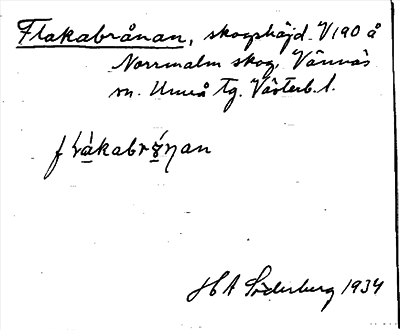 Flakabrånan, skogshöjd V190 å
Norrmalm skog, Vännäs
sn. Umeå tg. Västerb. l.
Söderberg 1934